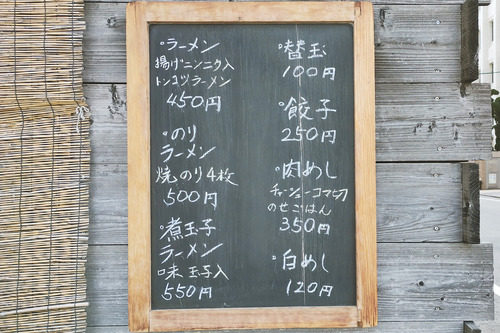 °ラーメン
揚げニンニク入
トンコツラーメン
450円
°のり
ラーメン
焼のり4枚
500円
°煮玉子
ラーメン
味玉子入
550円
°替玉
100円
°餃子
250円
°肉めし
チャーシューコマ切
のせごはん
350円
°白めし
120円